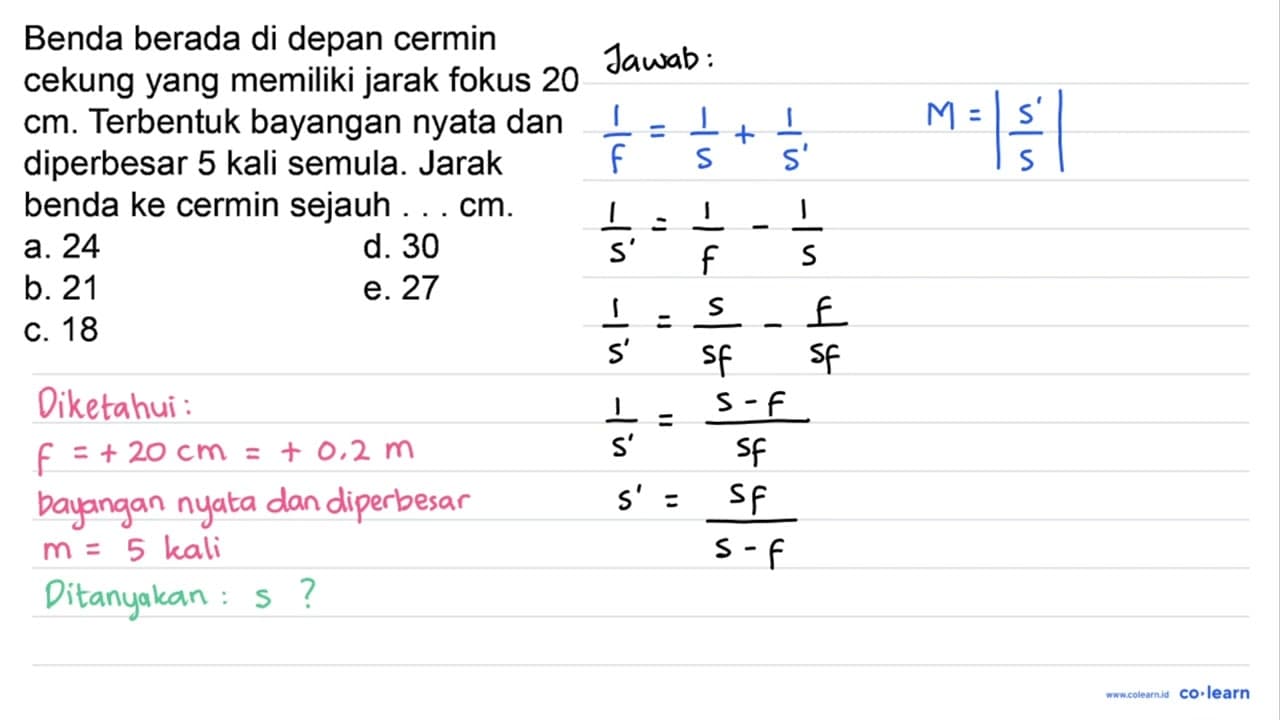 Benda berada di depan cermin
cekung yang memiliki jarak fokus 20
cm. Terbentuk bayangan nyata dan
diperbesar 5 kali semula. Jarak
benda ke cermin sejauh . . . cm.
a. 24 d. 30
b. 21 e. 27
c. 18
Diketahui:
f = + 20 cm = + 0.2 m
bayangan nyata dan diperbesar
m = 5 kali
Ditanyakan : s ?
Jawab :
1/f = 1/s + 1/s' M = |s'/s|
1/s' = 1/f - 1/s
1/s' = s/sf - f/sf
1/s' = s - f/sf
s' = sf/s - f
www.colearn.id co·learn